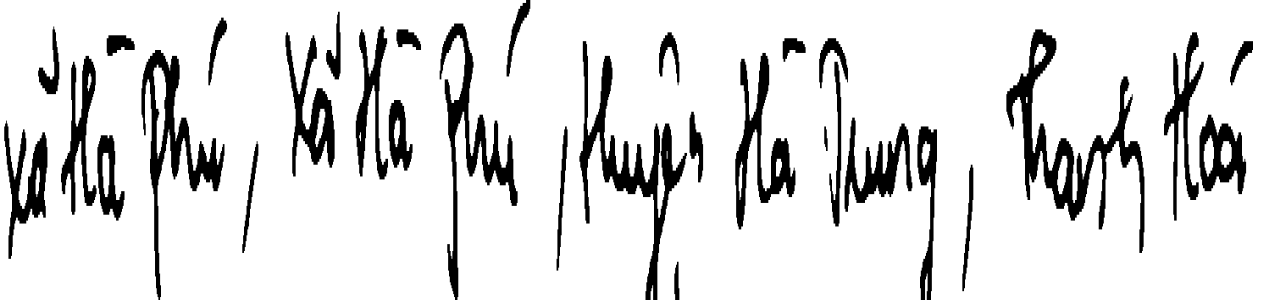 Xã Hà Phú, Xã Hà Phú, Huyện Hà Trung, Thanh Hoá